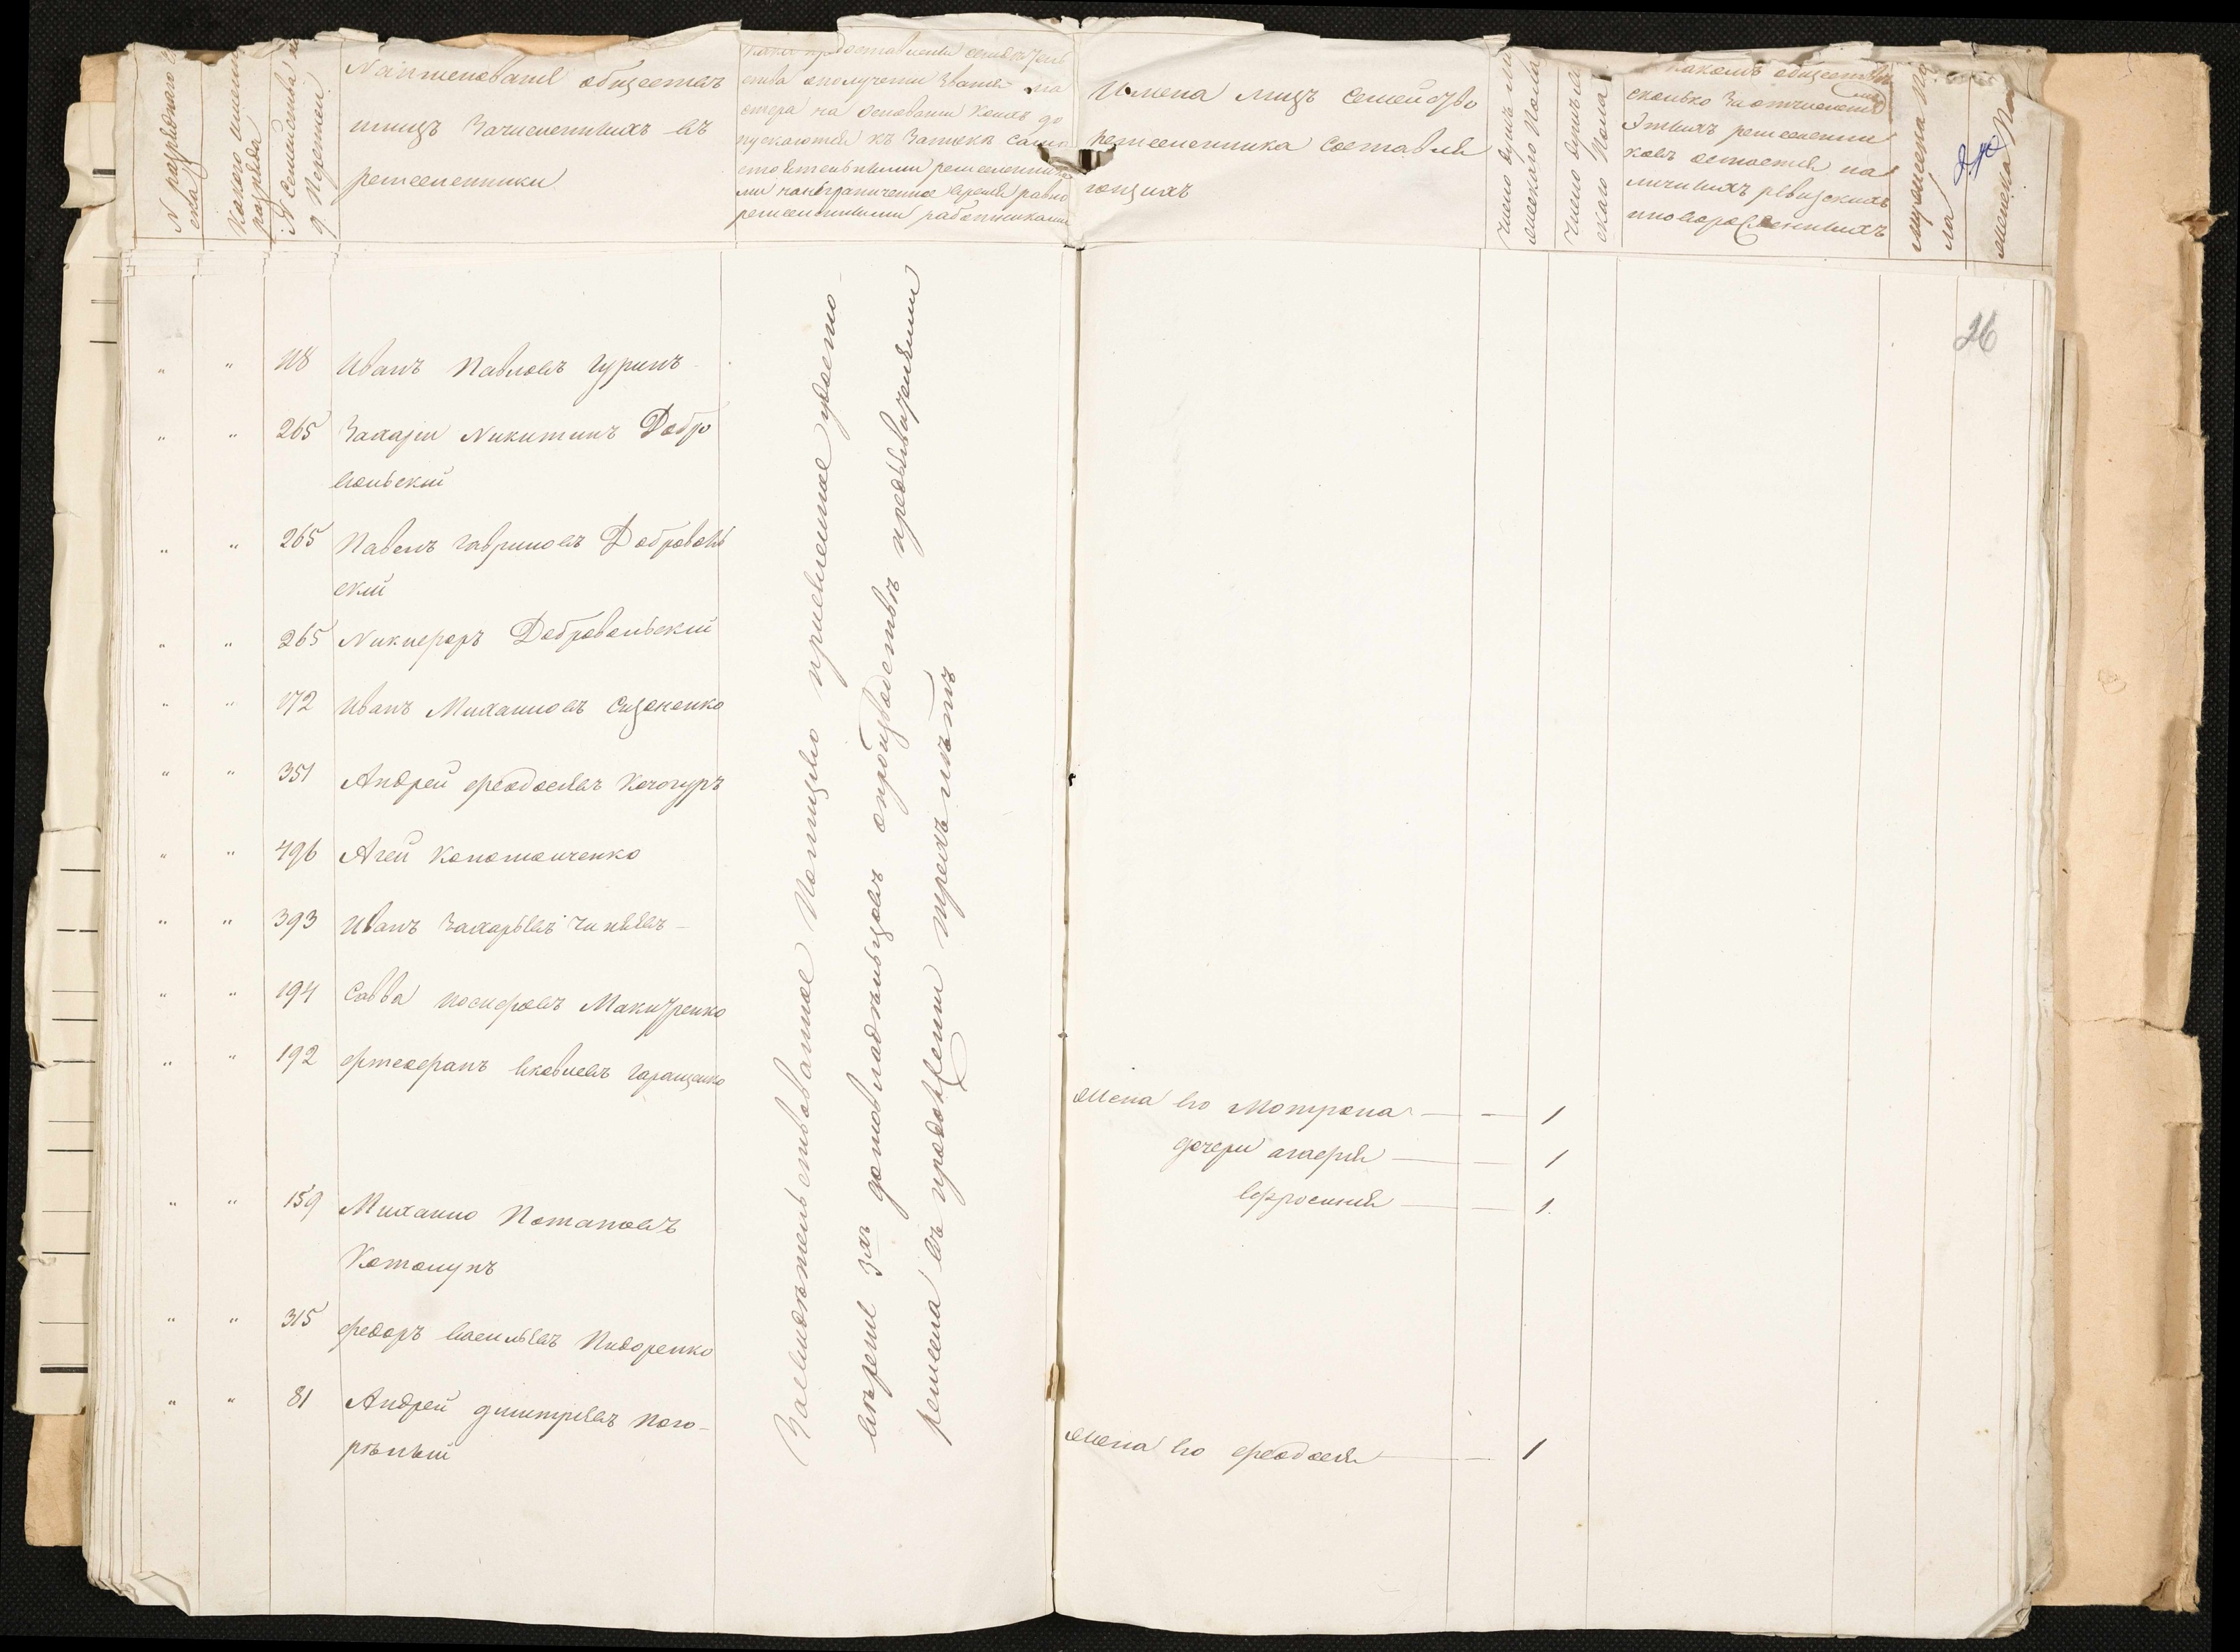 N разряднаго с
ска
Какого имен
разряда
N семейства
9. Переписи
Наименованіе обществъ
илицъ Зачисленныхъ въ
ремесленники
ства ополученіи Званія ма
стера на основаніи коихъ до
пускаются къ Записки само
стоятельными ремесленника
ми нанеограниченное время равно
ремесленными работниками
Имена лицъ семейство
ремесленника составля
ющихъ
Число душъ
мужскаго Пола
Число душъ
скаго Пола
какомъ обществѣ
сколько Заотчисленіемъ
Этихъ ремесленни
ковъ остается на
личныхъ ревизскихъ
иноворожденныхъ
мужеска По
ла
женска По
26
" " 118 Иванъ Павловъ Гуринъ
" " 265 Захарій Никитинъ Добро
вольскій
" " 265 Павелъ Гавриловъ Добровль
скій
" " 265 Никифоръ Добровольскій
" " 172 Иванъ Михайловъ Сизоненко
" " 351 Андрей Феодосіевъ Кочогуръ
" " 496 Агей Капотонченко
" " 393 Иванъ Захарьевъ
" " 194 Савва Іосифовъ Макитренко
" " 192 Фтеофанъ Яковлевъ Гаращенко
жена его Мотрона — — 1
дочери Агафія — — 1
Ефросинія — — 1.
" " 159 Михайло Потаповъ
Котолупъ
" " 315 Федоръ Васильевъ Пидоренко
" " 81 Андрей Дмитріевъ Пого-
рѣлый
жена его Феодосія — — 1
Засвидѣтельствованное Полицією присяжное удосто-
вѣреніе 3хъ домовладѣльцовъ опроизводствѣ предъявителями
ремесла въ продолженіи трехъ лѣтъ